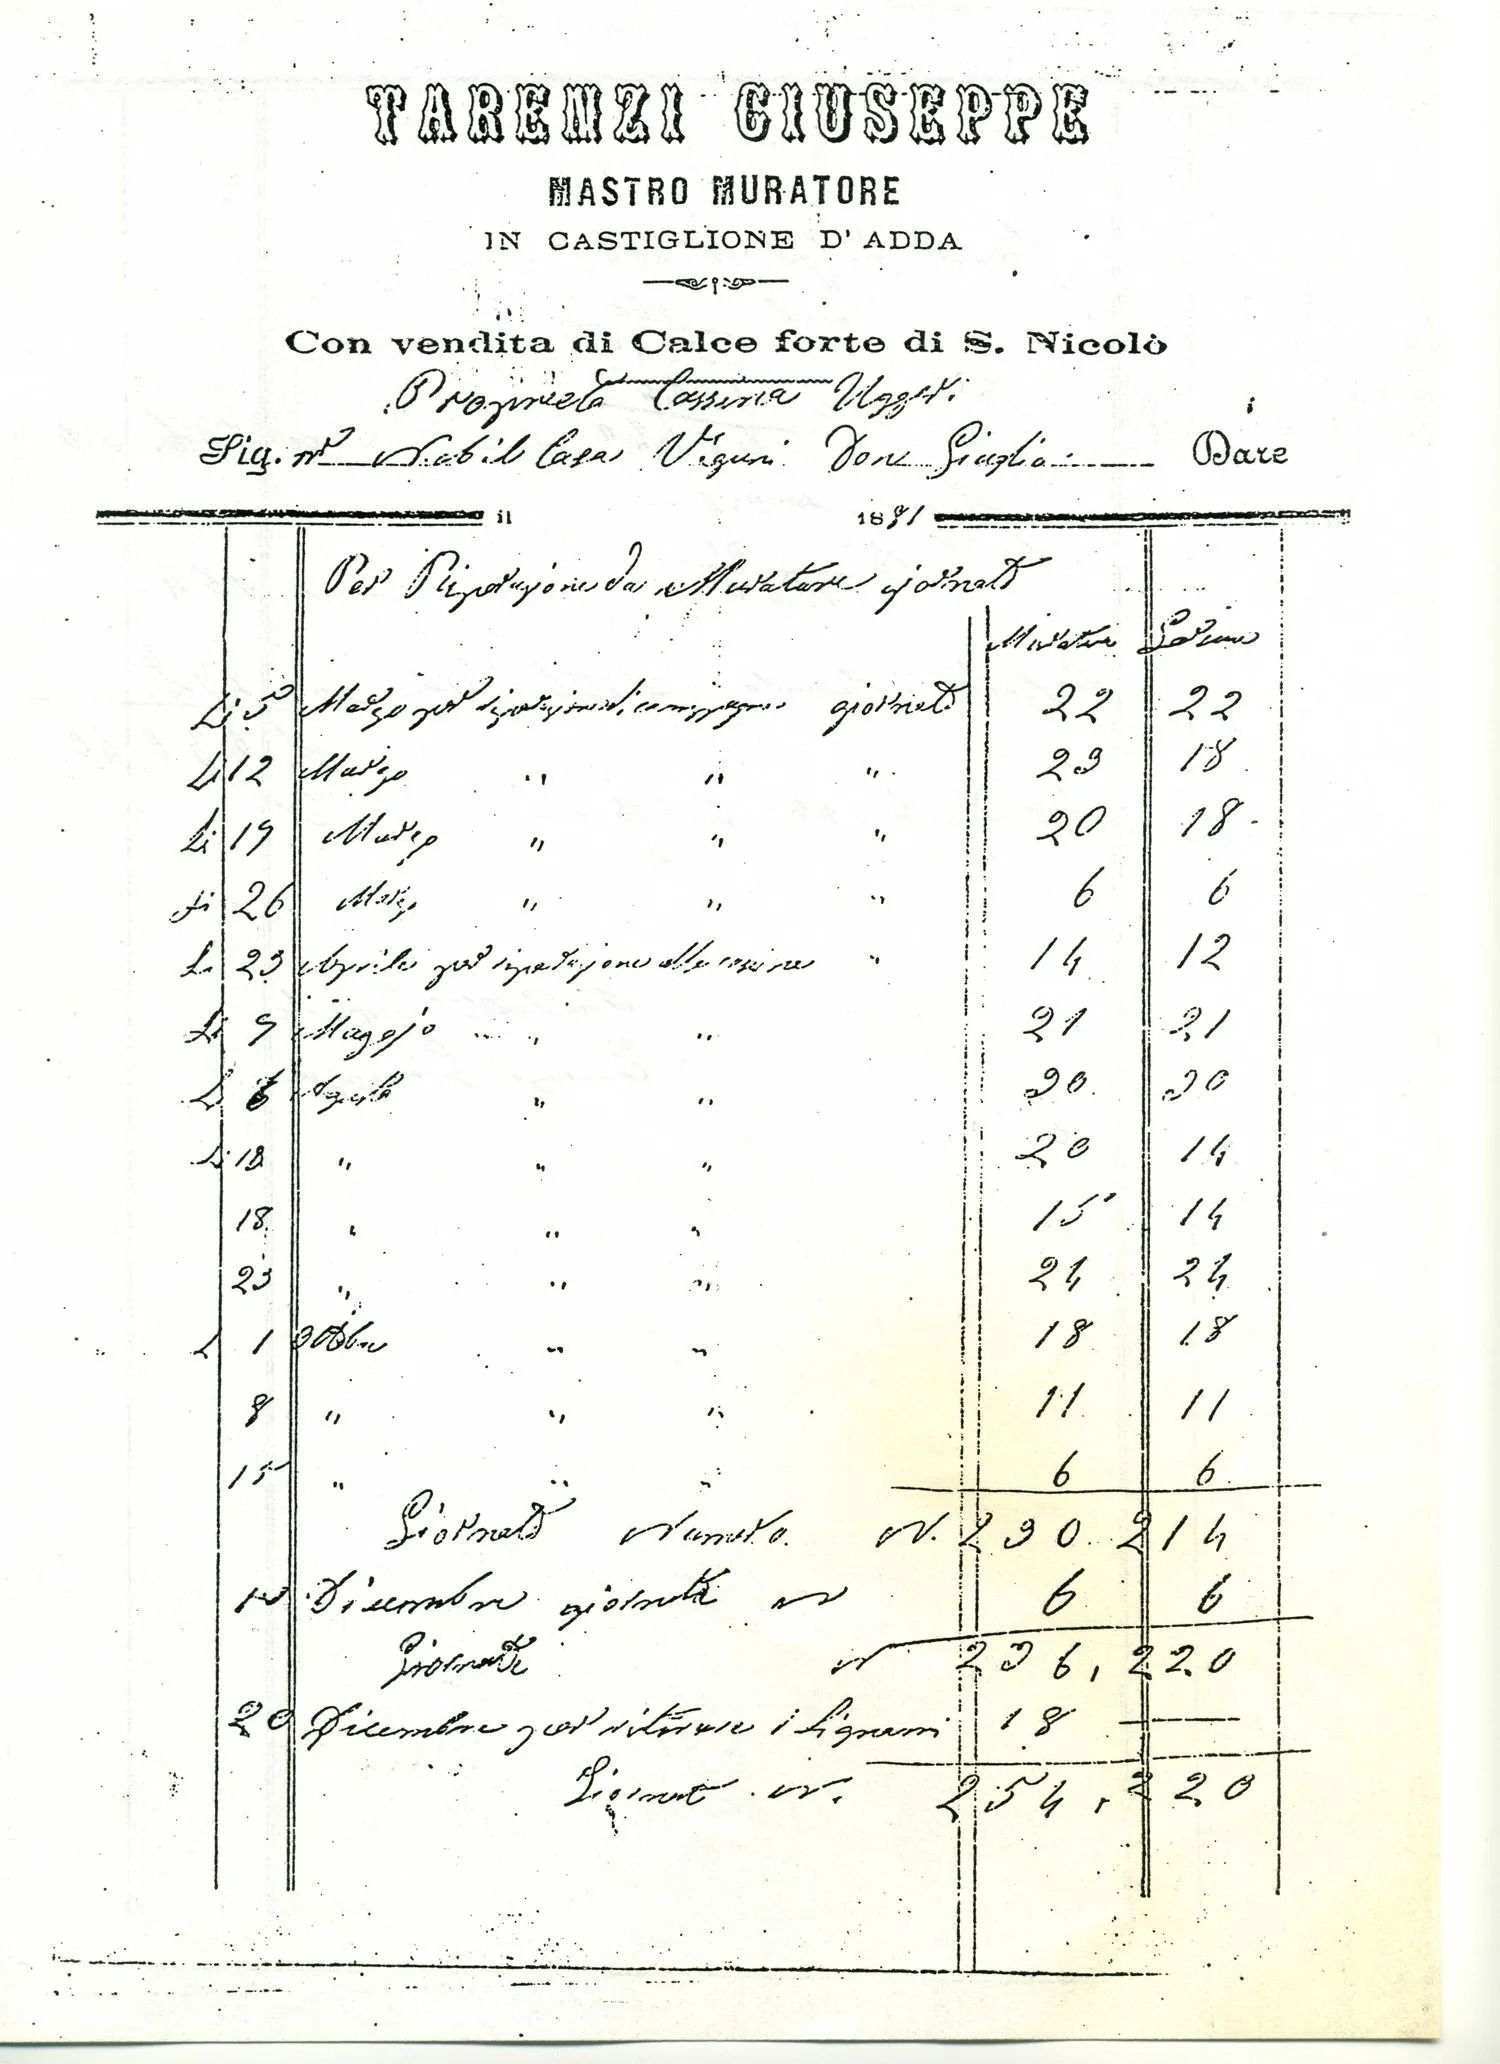 TARENZI GIUSEPPE
MASTRO MURATORE
IN CASTIGLIONE D'ADDA
Con vendita di Calce forte di S. Nicolò
Proprieta Cassina Uggeri
Sig. Nobil Casa Vigani Don Giuglio Dare
il 1891
Per Riparazione da Murature giornate
Murature
Li 5 Marzo per riparazione di giornate 22 22
Li 12 Marzo " " " 23 18
Li 19 Marzo " " " 20 18
Li 26 Marzo " " " 6 6
Li 23 Aprile per riparazione alle cassine " 14 12
Li 9 Maggio " " 21 21
Li 6 Agosto " " 30 30
Li 12 " " " 20 14
18 " " " 15 14
23 " " " 24 24
Li 1 Ottobre " " 18 18
8 " " " 11 11
15 " " " 6 6
Giornate Numero N. 230 214
Dicembre giornate N 6 6
Giornate N 236, 220
20 Dicembre per ritirare i Lignami 18 —
Giornate N. 254, 220